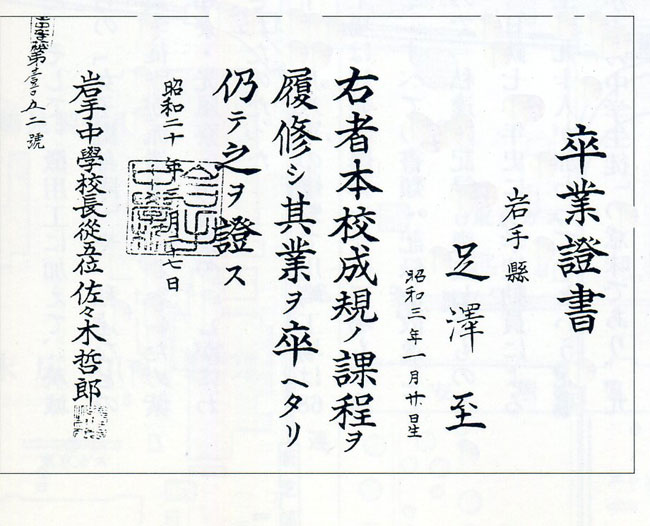 卒業證書
岩手縣
足澤 至
昭和三年一月廿日生
右者本校成規ノ課程ヲ
履修シ其業ヲ卒ヘタリ
仍テ之ヲ證ス
昭和二十年三月二十七日
岩手中學校長從五位佐々木哲郎
第壹〇五二號
岩手中學校